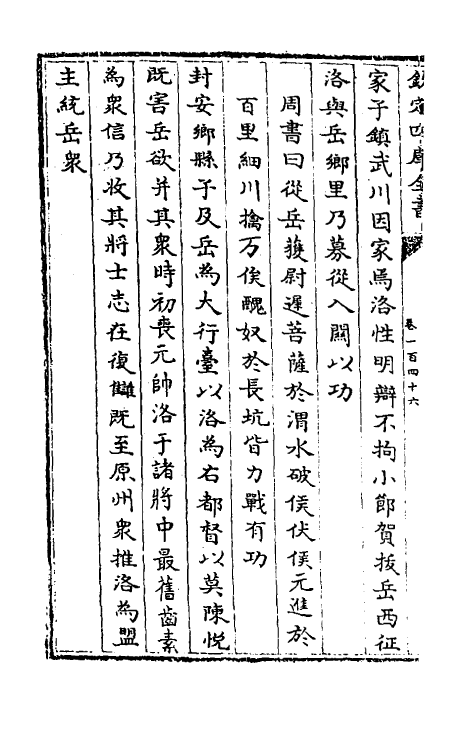 欽定四庫全書
卷一百四十六
家子鎮武川因家焉洛性明辯不拘小節賀拔岳西征
洛與岳鄉里乃募從入關以功
周書曰從岳獲尉遲菩薩於渭水破侯伏侯元進於
百里細川擒万俟醜奴於長坑皆力戰有功
封安鄉縣子及岳為大行臺以洛為右都督以莫陳悦
既害岳欲并其衆時初喪元帥洛于諸將中最舊齒素
為衆信乃收其將士志在復讎既至原州衆推洛為盟
主統岳衆